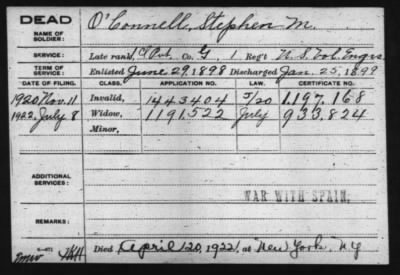 DEAD
NAME OF SOLDIER: O'Connell, Stephen M.
SERVICE: Late rank 1 Cl Pvt Co. G, 1 Reg't U.S. Vol. Engrs
TERM OF SERVICE: Enlisted June 29, 1898 Discharged Jan. 25, 1899
DATE OF FILING. CLASS. APPLICATION NO. LAW. CERTIFICATE NO.
1920 Nov. 11 Invalid, 1443404 5/20 1,197,168
1922, July 8 Widow, 1191522 July 933,824
Minor,
ADDITIONAL SERVICES:
WAR WITH SPAIN.
REMARKS:
Died April 20, 1922, at New York, NY